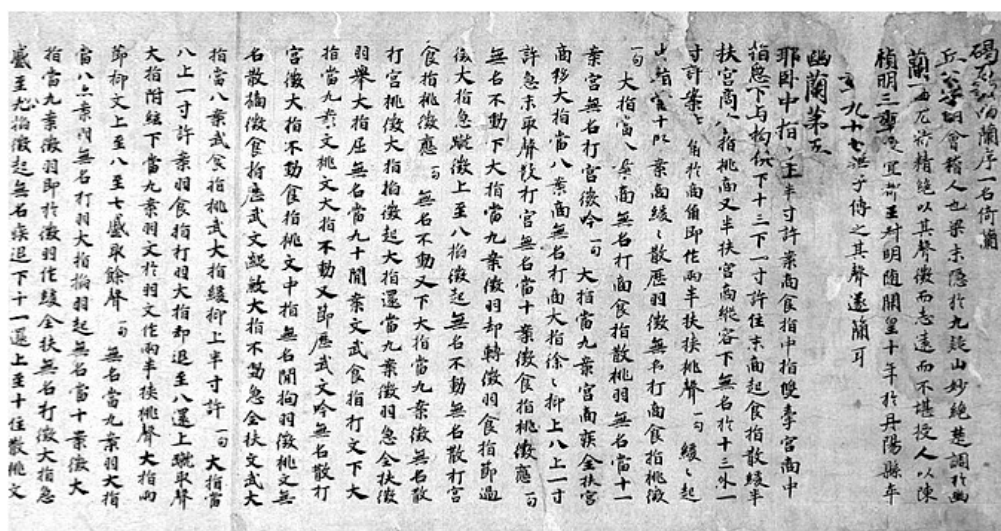 碣石調幽蘭序一名倚蘭
丘公字明會稽人也梁末隱於九疑山妙絕楚調於幽
蘭一曲尤特精絕以其聲微而志遠而不堪授人以陳
禎明三年授宜都王叔明隨開皇十年於丹陽縣卒
年九十七無子傳之其聲遂簡耳
幽蘭第五
耶臥中指十上半寸許案商食指中指雙牽宮商中
指急下与拘俱下十三下一寸許住末商起食指散緩半
扶宮商食指挑商又半扶宮商縱容下無名於十三外一
寸許案商角於商角即作兩半扶挾挑聲一句緩〻起
十案商緩〻散歷羽徵無名打商食指挑徵
一句大指當八案商無名打商食指散挑羽無名當十一
案宮無名打宮徵吟一句大指當九案宮商疾全扶宮
商移大指當八案商無名打商大指徐〻抑上八上一寸
許急末取聲散打宮無名當十案徵食指挑徵應一句
無名不動下大指當九案徵羽却轉徵羽食指節過
徵大指急蹴徵上至八掐徵起無名不動無名散打宮
食指挑徵應一句無名不動又下大指當九案徵無名散
打宮挑徵大指掐徵起大指還當九案徵羽急全扶徵
羽舉大指屈無名當九十間案文武食指打文下大
指當九案文挑文大指不動又節歷武文吟無名散打
宮徵大指不動食指挑文中指無名間拘羽徵挑文無
名散摘徵食指歷武文緩放大指不動急全扶文武大
指當八案武食指挑武大指緩抑上半寸許一句大指當
八上一寸許案羽食指打羽大指却退至八還上蹴取聲
大指附絃下當九案羽文於羽文作兩半挾挑聲大指兩
節抑文上至八至七蹴取餘聲一句無名當九案羽大指
當八上案羽無名打羽大指掐羽起無名當十案徵大
指當九案徵羽即於徵羽作緩全扶無名打徵大指急
蹴至九掐徵起無名疾退下十一還上至十住散挑文